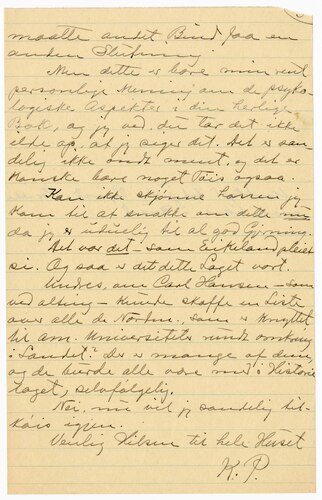 maatte andet Bind faa en
anden Slutning
Men dette er bare min rent
personlige Mening om de psyko-
logiske Aspekter i din herlige
Bok, og jeg ved, du tar det ikke
ilde op, at jeg siger det. Det er san-
delig ikke ondt ment, og det er
kanske bare noget Tøis ogsaa.
Kan ikke skjønne hvor jeg
kom til at snakke om dette nu
da jeg er uduelig til al god Gjerning.
Det var det - som Eikeland pleiet
si. Og saa er det dette Laget vort.
Undres, om Carl Hansen - som
ved alting - kunde skaffe en Liste
over alle de Norske, som er knyttet
til am. Universiteter rundt omkring
i Landet? Der er mange af dem,
og de burde alle være med i Historie
laget, selvfølgelig.
Nei, nu vil jeg sandelig til-
køis igjen.
Venlig Hilsen til hele Huset
K. P.